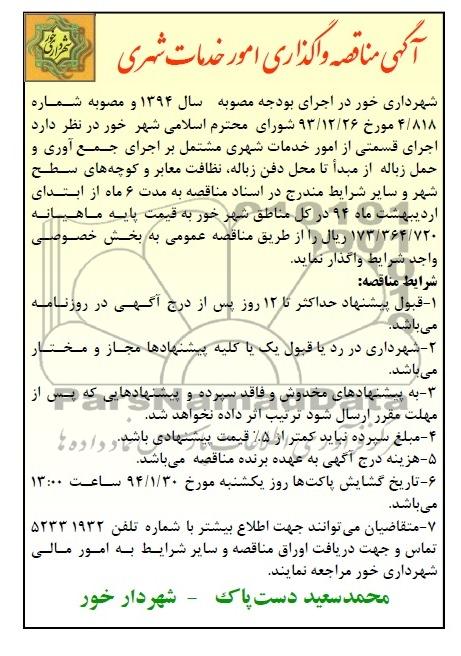 شهرداری خور
آگهی مناقصه واگذاری امور خدمات شهری
شهرداری خور در اجرای بودجه مصوبه سال ۱۳۹۴ و مصوبه شماره
۴/۸۱۸ مورخ ۹۳/۱۲/۲۶ شورای محترم اسلامی شهر خور در نظر دارد
اجرای قسمتی از امور خدمات شهری مشتمل بر اجرای جمع آوری و
حمل زباله از مبدأ تا محل دفن زباله، نظافت معابر و کوچه‌های سطح
شهر و سایر شرایط مندرج در اسناد مناقصه به مدت ۶ ماه از ابتدای
اردیبهشت ماه ۹۴ در کل مناطق شهر خور به قیمت پایه ماهیانه
۱۷۳/۳۶۴/۷۲۰ ریال را از طریق مناقصه عمومی به بخش خصوصی
واجد شرایط واگذار نماید.
شرایط مناقصه:
۱-قبول پیشنهاد حداکثر تا ۱۲ روز پس از درج آگهی در روزنامه
می‌باشد.
۲-شهرداری در رد یا قبول یک یا کلیه پیشنهادها مجاز و مختار
می‌باشد.
۳-به پیشنهادهای مخدوش و فاقد سپرده و پیشنهادهایی که پس از
مهلت مقرر ارسال شود ترتیب اثر داده نخواهد شد.
۴-مبلغ سپرده نباید کمتر از ۵٪ قیمت پیشنهادی باشد.
۵-هزینه درج آگهی به عهده برنده مناقصه می‌باشد.
۶-تاریخ گشایش پاکت‌ها روز یکشنبه مورخ ۹۴/۱/۳۰ ساعت ۱۳:۰۰
می‌باشد.
۷-متقاضیان می‌توانند جهت اطلاع بیشتر با شماره تلفن ۱۹۳۲ ۵۲۳۳
تماس و جهت دریافت اوراق مناقصه و سایر شرایط به امور مالی
شهرداری خور مراجعه نمایند.
محمدسعید دست‌پاک - شهردار خور
ParsNamadData